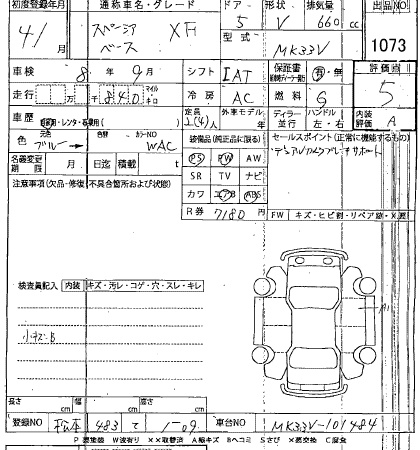 初度登録年月 通称車名・グレード ドア 形状 排気量 出品NO
4/1 月 スペーシア XF 5 V 660 cc
ベース 型式 MK33V 1073
車検 8年 9月 シフト IAT 保証書 有・無 評価点
走行 840 マイル キロ 冷房 AC 燃料 G 5
車歴 自家用・レンタ・営業用( ) 定員 2(4)人 外車モデル年 ディーラー 並行 ハンドル 左・右 内装評価 A
色 元色 ブルー カラーNO WAC 装備品(純正品に限る) セールスポイント(正常に機能するもの)
PS PW AW デュアルカメラブレーキサポート
名義変更期限 月 日迄 積載 t SR TV ナビ
注意事項(欠品・修復・不具合箇所および状態) カワ エアB ABS
R券 7180円 FW キズ・ヒビ割・リペア跡・X要
検査員記入 内装 キズ・汚レ・コゲ・穴・スレ・キレ
A1
小キズB
長さ cm 幅 cm 高さ cm
登録NO 松本 483 て 1-09 車台NO MK33V-101484
P 要塗装 W波有り ××取替済 A線キズ Bヘコミ Sさび ×要交換 C腐食